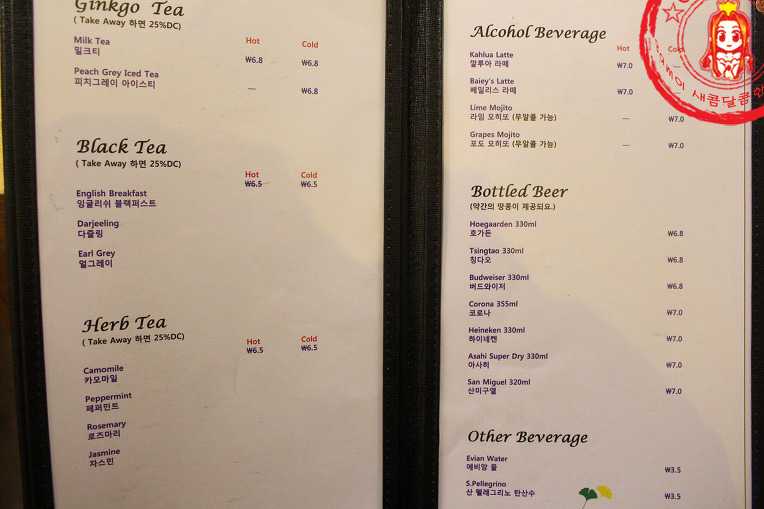 Ginkgo Tea
( Take Away 하면 25%DC)
Hot Cold
Milk Tea
밀크티
₩6.8 ₩6.8
Peach Grey Iced Tea
피치그레이 아이스티
— ₩6.8
Black Tea
( Take Away 하면 25%DC)
Hot Cold
₩6.5 ₩6.5
English Breakfast
잉글리쉬 블랙퍼스트
Darjeeling
다즐링
Earl Grey
얼그레이
Herb Tea
( Take Away 하면 25%DC)
Hot Cold
₩6.5 ₩6.5
Camomile
카모마일
Peppermint
페퍼민트
Rosemary
로즈마리
Jasmine
자스민
Alcohol Beverage
Hot Cold
Kahlua Latte
깔루아 라떼
₩7.0
Baiey's Latte
베일리스 라떼
₩7.0
Lime Mojito
라임 모히또 (무알콜 가능)
— ₩7.0
Grapes Mojito
포도 모히또 (무알콜 가능)
— ₩7.0
Bottled Beer
(약간의 땅콩이 제공되요.)
Hoegaarden 330ml
호가든
₩6.8
Tsingtao 330ml
칭다오
₩6.8
Budweiser 330ml
버드와이저
₩6.8
Corona 355ml
코로나
₩7.0
Heineken 330ml
하이네켄
₩7.0
Asahi Super Dry 330ml
아사히
₩7.0
San Miguel 320ml
산미구엘
₩7.0
Other Beverage
Evian Water
에비앙 물
₩3.5
S.Pellegrino
산 펠레그리노 탄산수
₩3.5
새콤달콤한